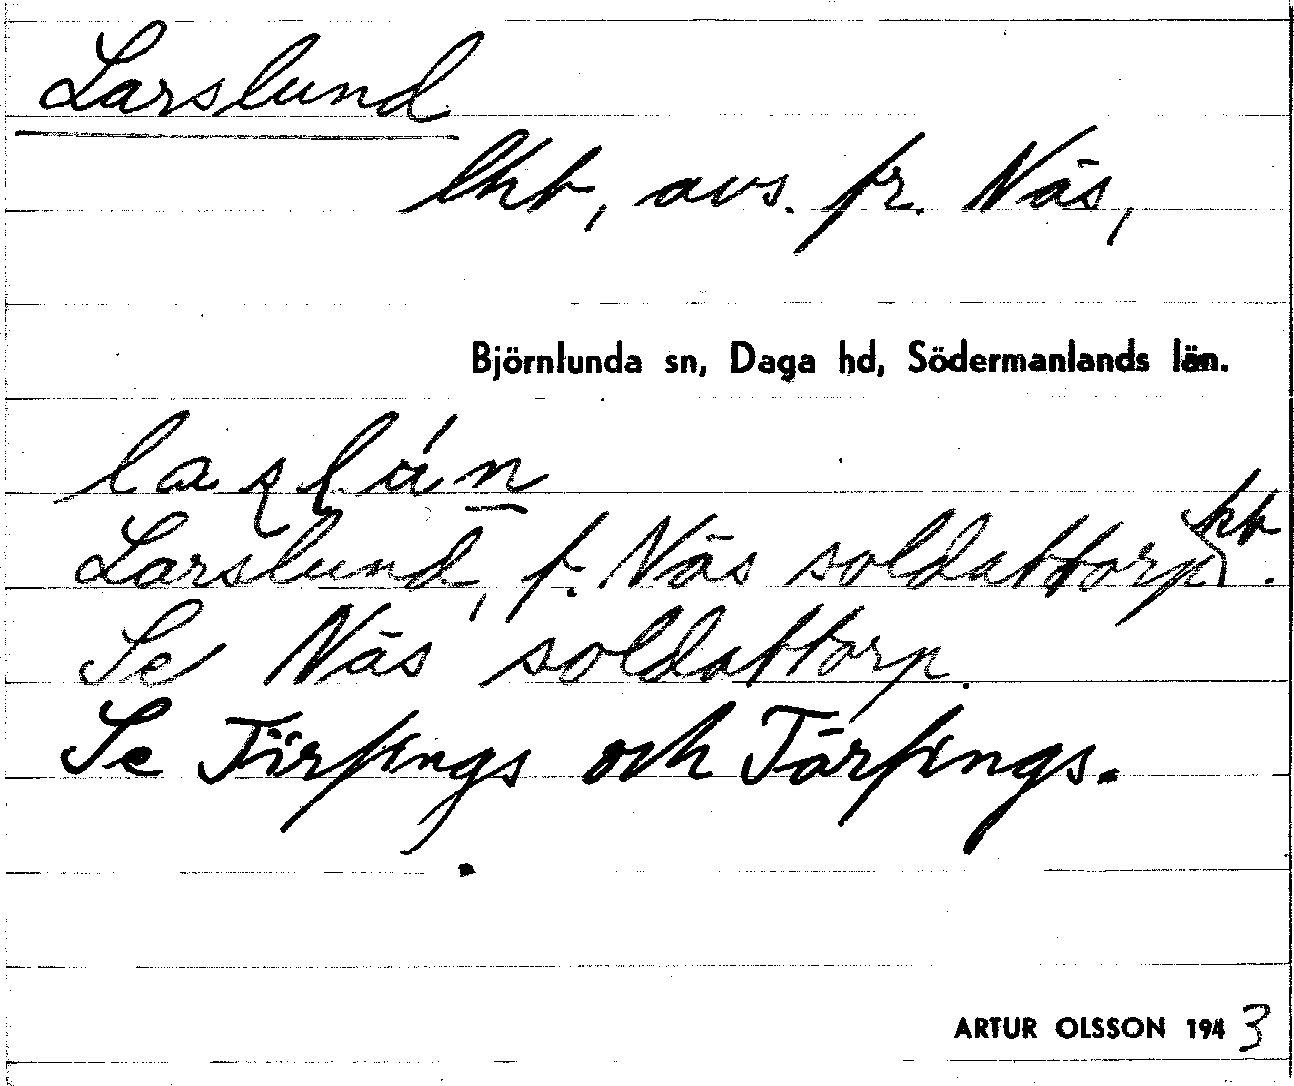 Larslund
lht, avs. fr. Näs,
Björnlunda sn, Daga hd, Södermanlands län.
Larslund, f. Näs soldattorp kt.
Se Näs soldattorp.
Se Törpings och Tärpings.
ARTUR OLSSON 1943